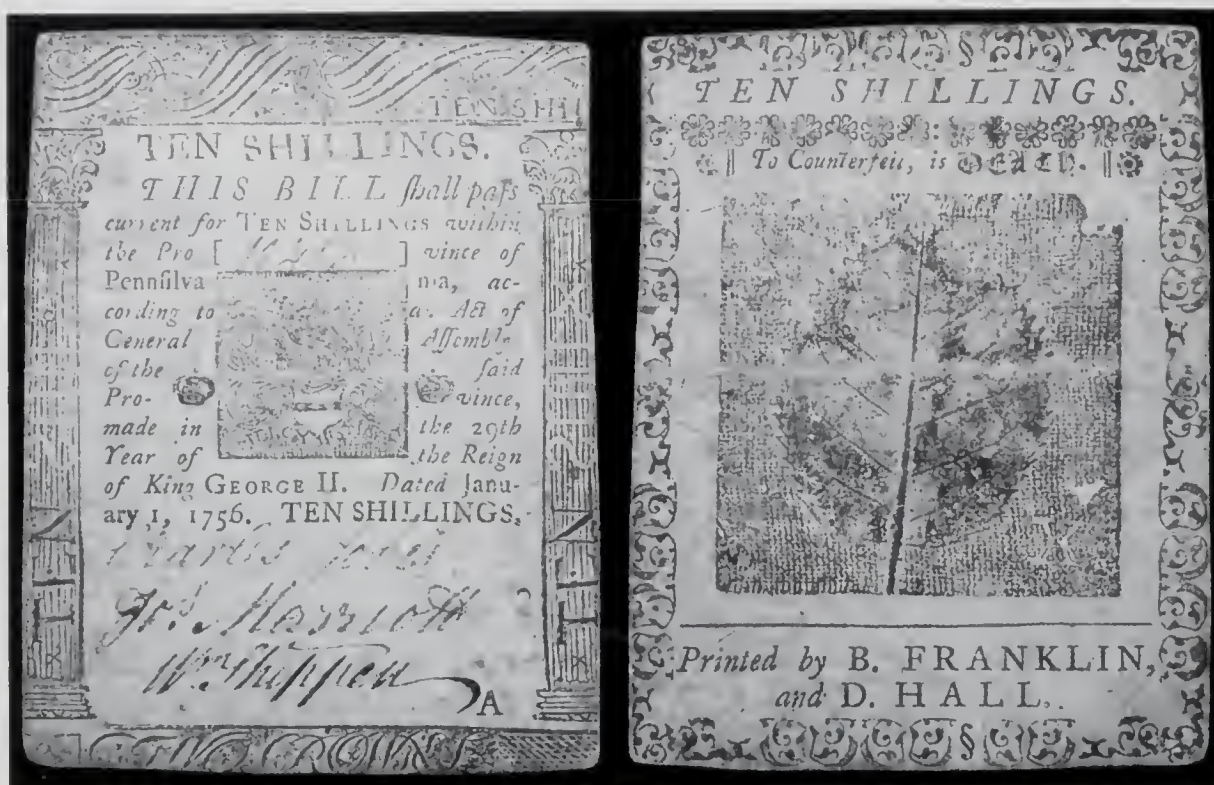 TEN SHIL
TEN SHILLINGS.
THIS BILL ſhall paſs
current for TEN SHILLINGS within
the Pro [ ] vince of
Pennſilva nia, ac-
cording to an Act of
General Aſſembly
of the ſaid
Pro- vince,
made in the 29th
Year of the Reign
of King GEORGE II. Dated Janu-
ary 1, 1756. TEN SHILLINGS.
Joſ. Marriott
Wm Shippen
A
TEN SHILLINGS.
To Counterfeit, is DEATH.
Printed by B. FRANKLIN,
and D. HALL.